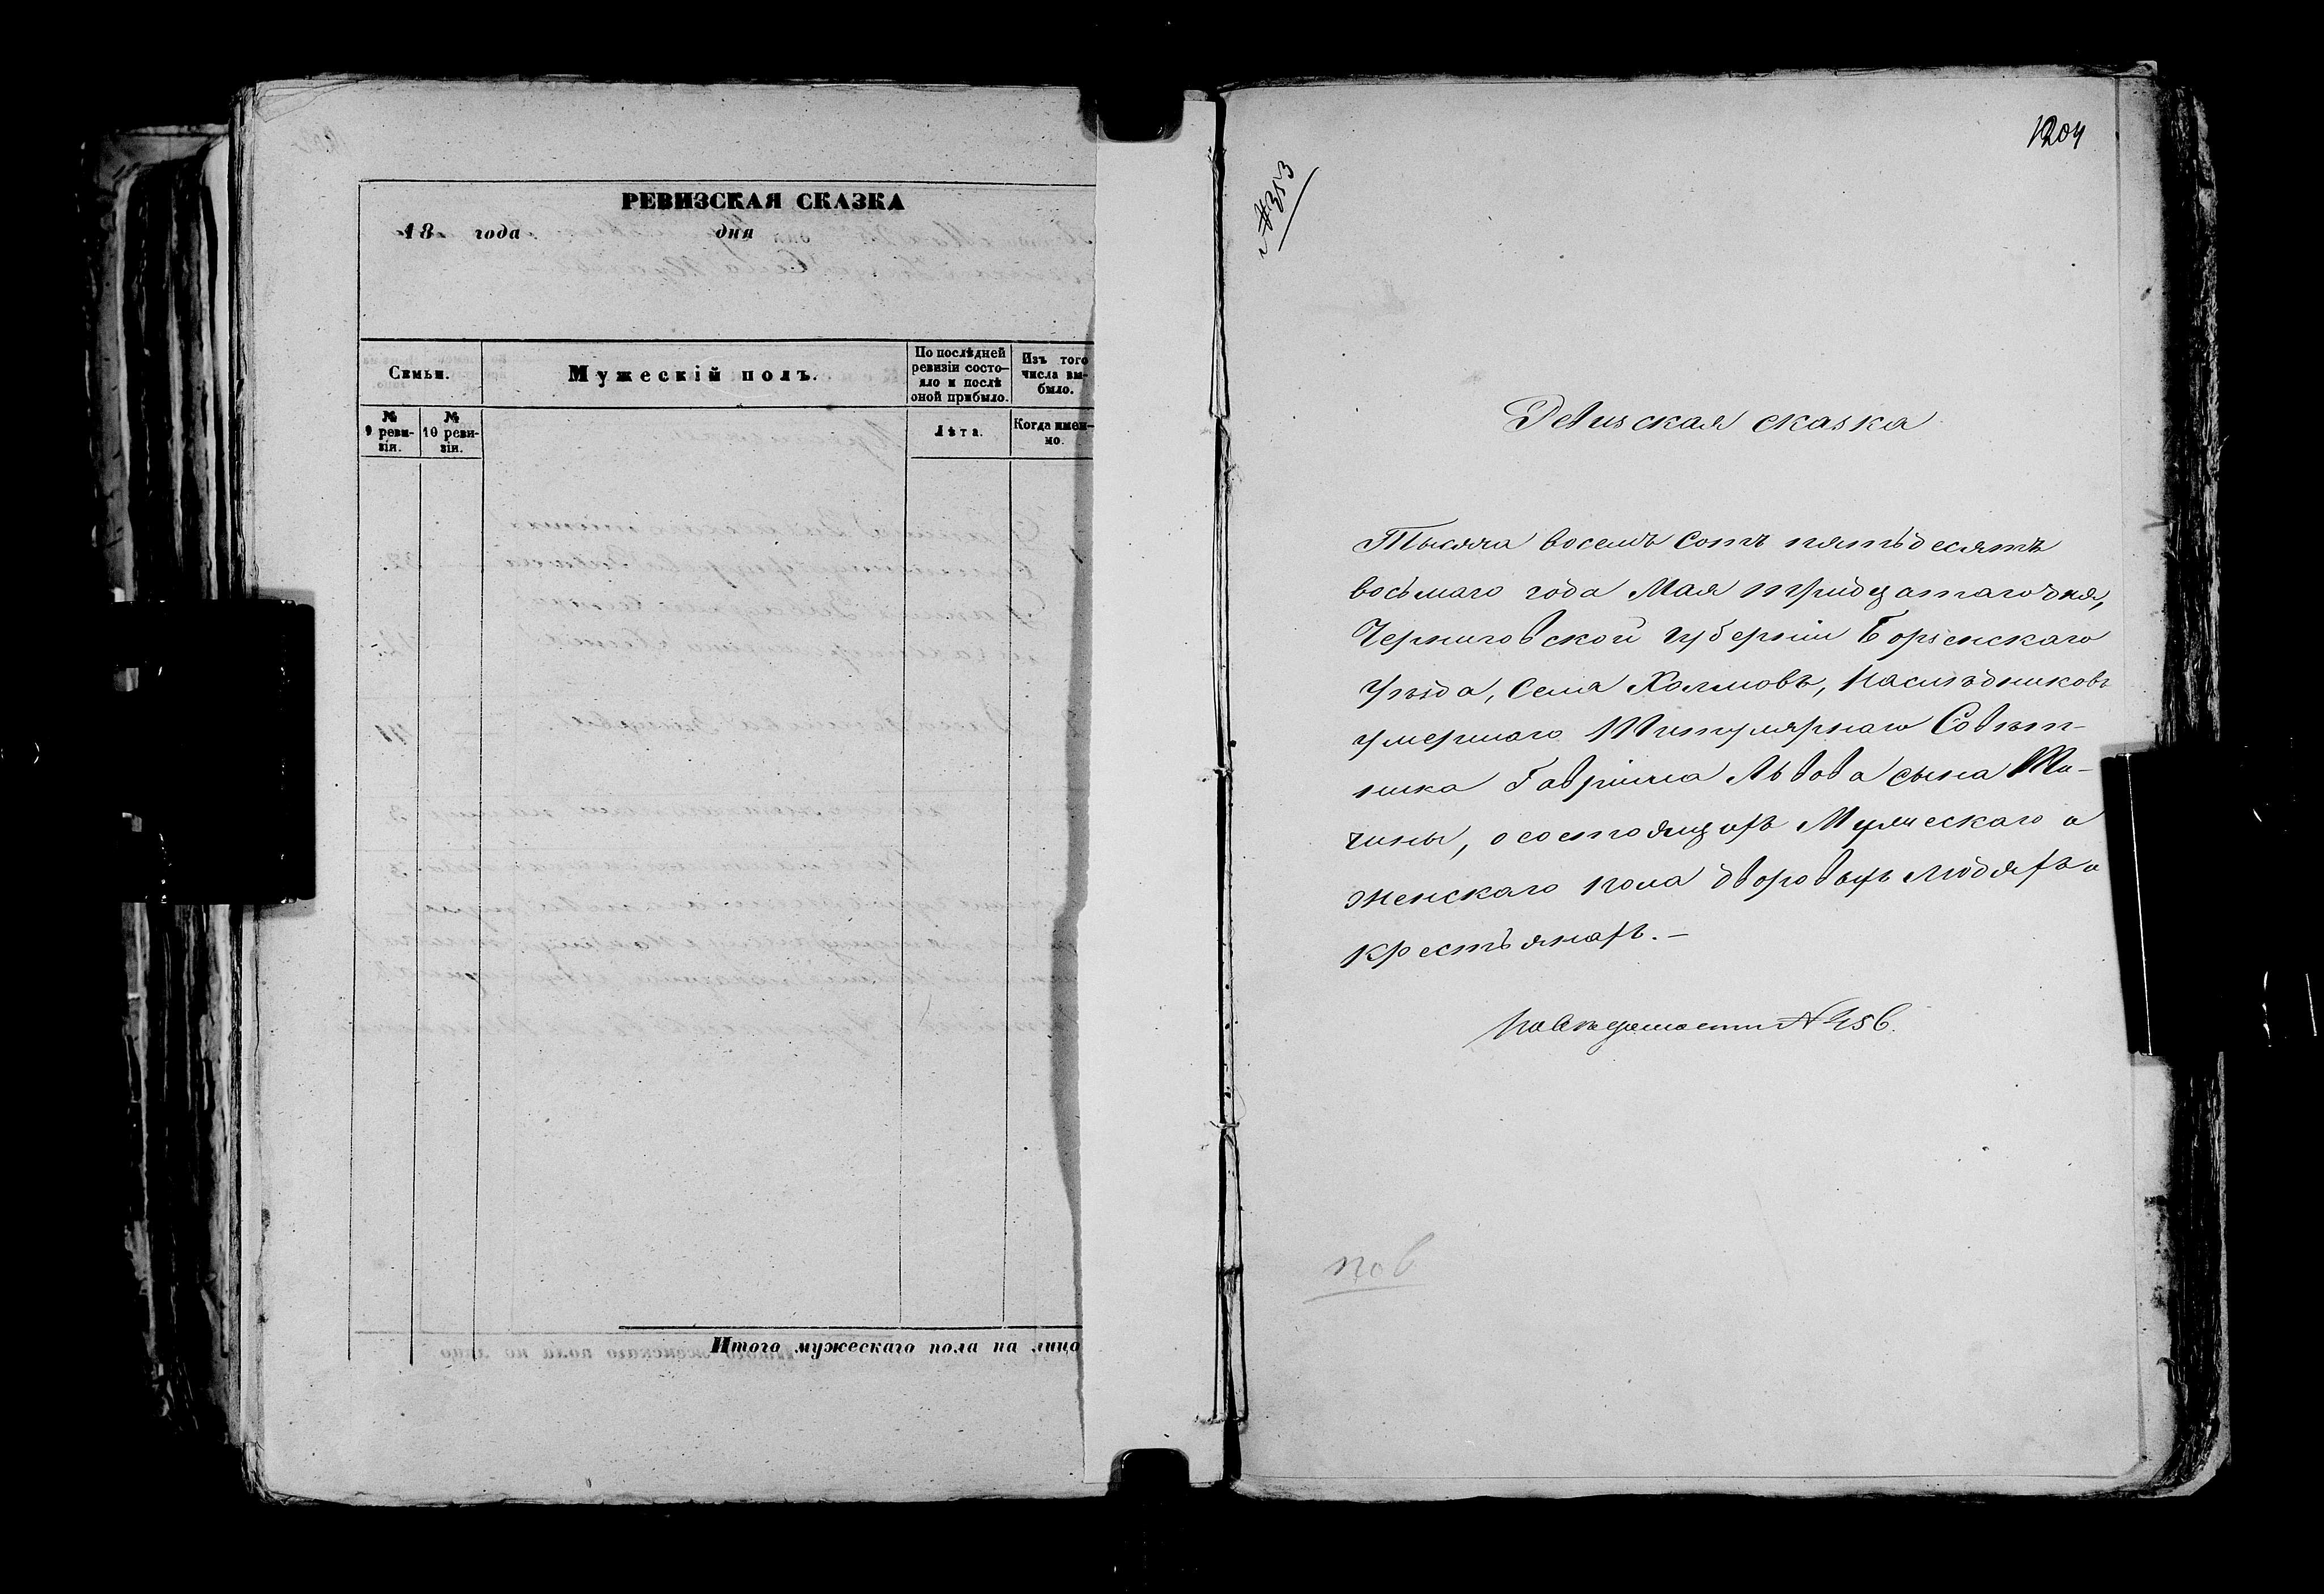 РЕВИЗСКАЯ СКАЗКА
18 года дня
Семьи.
Мужескій полъ.
По послѣдней ревизіи состо-
яло и послѣ
оной прибыло.
Изъ того
числа вы-
было.
№
9 реви-
зіи.
№
10 реви-
зіи.
Лѣта.
Когда имен-
но.
Итого мужескаго пола на лицо
1204
№353
Ревизская сказка
Тысяча восемь сотъ пятьдесятъ
восьмаго года Мая тридцатаго дня,
Черниговской губерніи Борзенскаго
уѣзда, села Холмовъ, наслѣдниковъ
умершаго Титулярнаго Совѣт-
ника Гавріила Львова сына
чины, о состоящихъ Мужескаго и
женскаго пола дворовыхъ людяхъ и
крестьянахъ.—